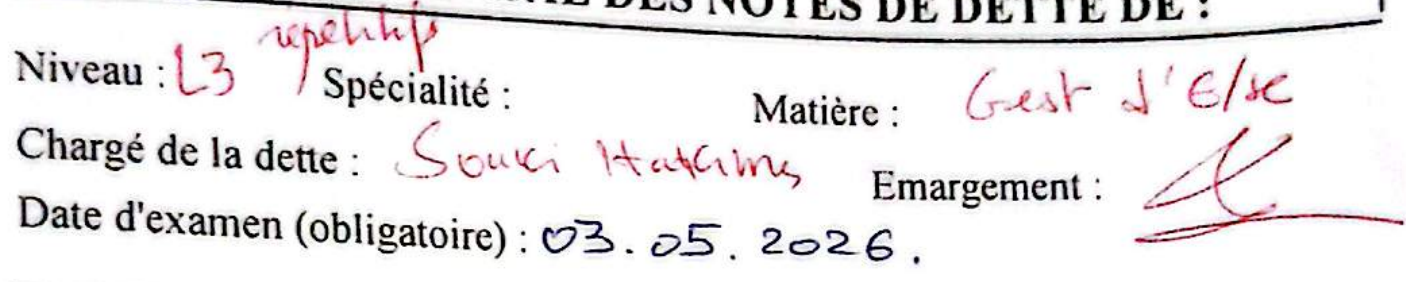 DES NOTES DE DETTE DE :
repetitifs
Niveau : L3 / Spécialité : Matière : Gest d'E/se
Chargé de la dette : Souki Emargement :
Date d'examen (obligatoire) : 03.05.2026.